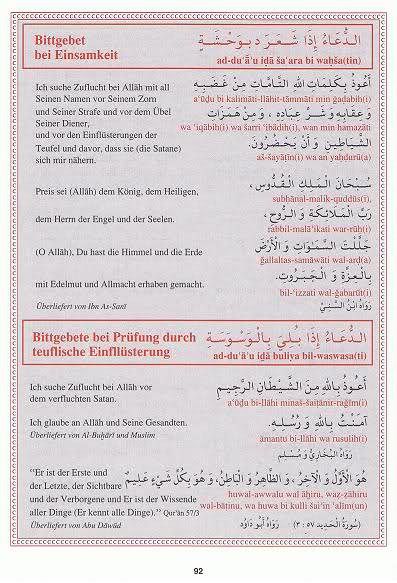 Bittgebet
bei Einsamkeit
الدُّعَاءُ إِذَا شَعَرَ بِوَحْشَةٍ
ad-duʿāʾu iḏā šaʿara bi waḥša(tin)
Ich suche Zuflucht bei Allāh mit all
Seinen Namen vor Seinem Zorn
und Seiner Strafe und vor dem Übel
Seiner Diener,
und vor den Einflüsterungen der
Teufel und davor, dass sie (die Satane)
sich mir nähern.
أَعُوذُ بِكَلِمَاتِ اللهِ التَّامَّاتِ مِنْ غَضَبِهِ
aʿūḏu bi kalimāti-llāhit-tāmmāti min ġaḍabih(i)
وَعِقَابِهِ وَ شَرِّ عِبَادِهِ ، وَ مِنْ هَمَزَاتِ
wa ʿiqābih(i) wa šarri ʿibādih(i), wan min hamazāti
الشَّيَاطِينِ وَ أَنْ يَحْضُرُونَ.
aš-šayāṭīn(i) wa an yaḥḍurū(a)
Preis sei (Allāh) dem König, dem Heiligen,
سُبْحَانَ الْمَلِكِ الْقُدُّوسِ ،
subḥānal-malik-quddūs(i),
dem Herrn der Engel und der Seelen.
رَبِّ الْمَلَائِكَةِ وَ الرُّوحِ ،
rabbil-malāʾikati war-rūḥ(i)
(O Allāh), Du hast die Himmel und die Erde
جَلَّلْتَ السَّمٰوَاتِ وَ الْأَرْضَ
ǧallaltas-samāwāti wal-arḍ(a)
mit Edelmut und Allmacht erhaben gemacht.
بِالْعِزَّةِ وَ الْجَبَرُوتِ.
bil-ʿizzati wal-ǧabarūt(i)
Überliefert von Ibn As-Sanī
رَوَاهُ ابْنُ السُّنِّيِّ
Bittgebete bei Prüfung durch
teuflische Einflüsterung
الدُّعَاءُ إِذَا بُلِيَ بِالْوَسْوَسَةِ
ad-duʿāʾu iḏā buliya bil-waswasa(ti)
Ich suche Zuflucht bei Allāh vor
dem verfluchten Satan.
أَعُوذُ بِاللهِ مِنَ الشَّيْطَانِ الرَّجِيمِ
aʿūḏu bi-llāhi minaš-šaiṭānir-raǧīm(i)
Ich glaube an Allāh und Seine Gesandten.
Überliefert von Al-Buḫārī und Muslim
آمَنْتُ بِاللهِ وَ رُسُلِهِ.
āmantu bi-llāhi wa rusulih(i)
رَوَاهُ الْبُخَارِيُّ وَ مُسْلِم
“Er ist der Erste und
der Letzte, der Sichtbare
und der Verborgene und Er ist der Wissende
aller Dinge (Er kennt alle Dinge).” Qurʾān 57/3
Überliefert von Abu Dāwūd
هُوَ الْأَوَّلُ وَ الْآخِرُ، وَ الظَّاهِرُ وَ الْبَاطِنُ، وَ هُوَ بِكُلِّ شَيْءٍ عَلِيمٌ
huwal-awwalu wal āḫiru, waẓ-ẓāhiru
wal-bāṭinu, wa huwa bi kulli šaiʾin ʿalīm(un)
(سُورَةُ الْحَدِيدِ ٥٧ : ٣) رَوَاهُ أَبُو دَاوُد
92